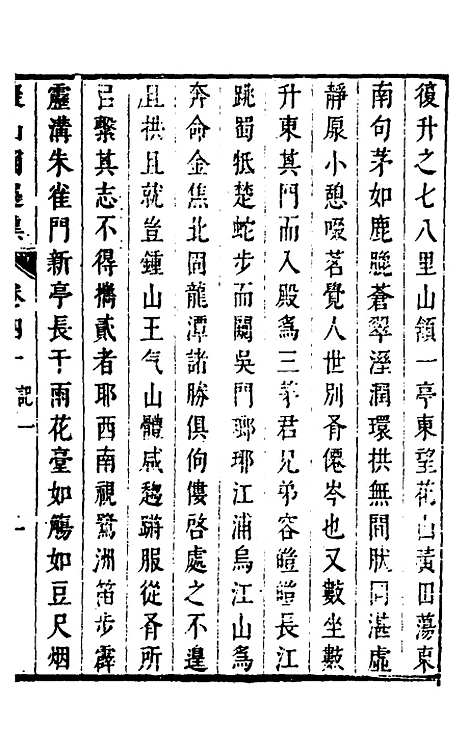 復升之七八里山領一亭東望花山黃田蕩東
南句茅如鹿晚蒼翠溼潤環拱無間肰同湛虛
靜原小憩啜茗覺人世別有僊岑也又數坐數
升東其門而入殿爲三茅君兄弟容皚皚長江
跳蜀牴楚蛇步而關吳門瑯琊江浦烏江山爲
奔命金焦北固龍潭諸勝俱佝僂啓處之不遑
且拱且就豈鍾山王气山體咸趨蹡服從有所
㠯繫其志不得攜貳者耶西南視鷺洲笛步霹
靂溝朱雀門新亭長干雨花臺如觴如豆尺烟
山 集 卷四十 記一